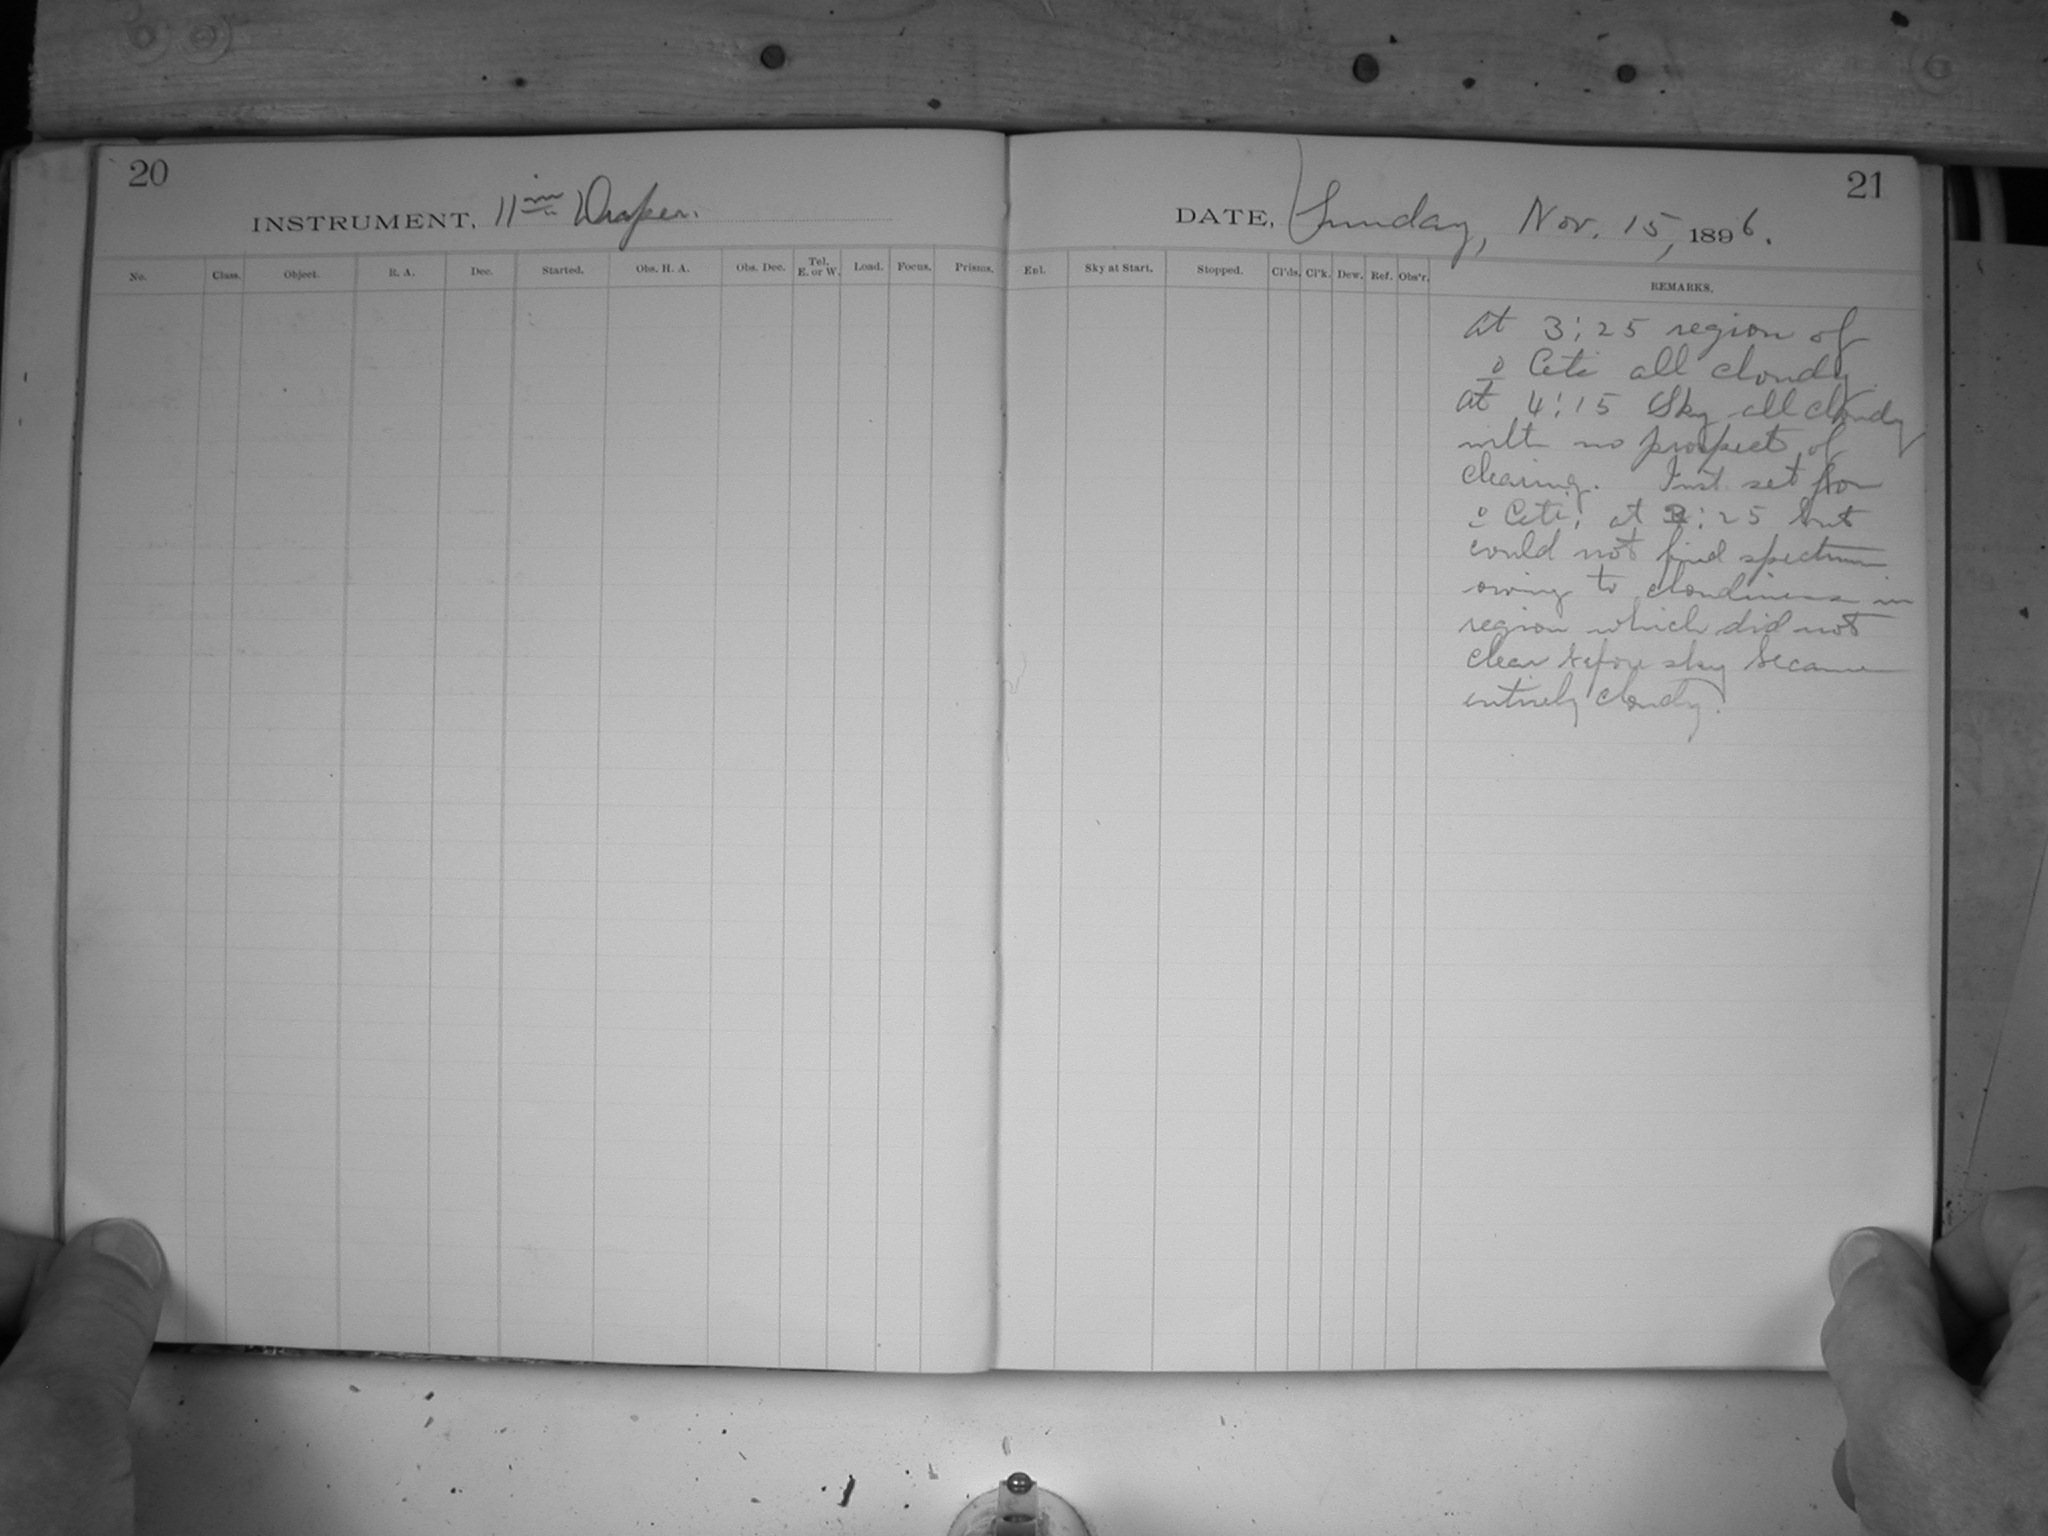 20
INSTRUMENT, 11 in Draper.
No. Class. Object. R. A. Dec. Started. Obs. H. A. Obs. Dec. Tel. E. or W. Load. Focus. Prisms.
21
DATE, Sunday, Nov. 15, 1896.
Enl. Sky at Start. Stopped. Cl'ds. Cl'k. Dew. Ref. Obs'r. REMARKS.
At 3:25 region of
o Ceti all cloudy
at 4:15 Sky all cloudy
with no prospect of
clearing. Inst. set for
o Ceti, at 3:25 but
could not find spectrum
owing to cloudiness in
region which did not
clear before sky became
entirely cloudy.